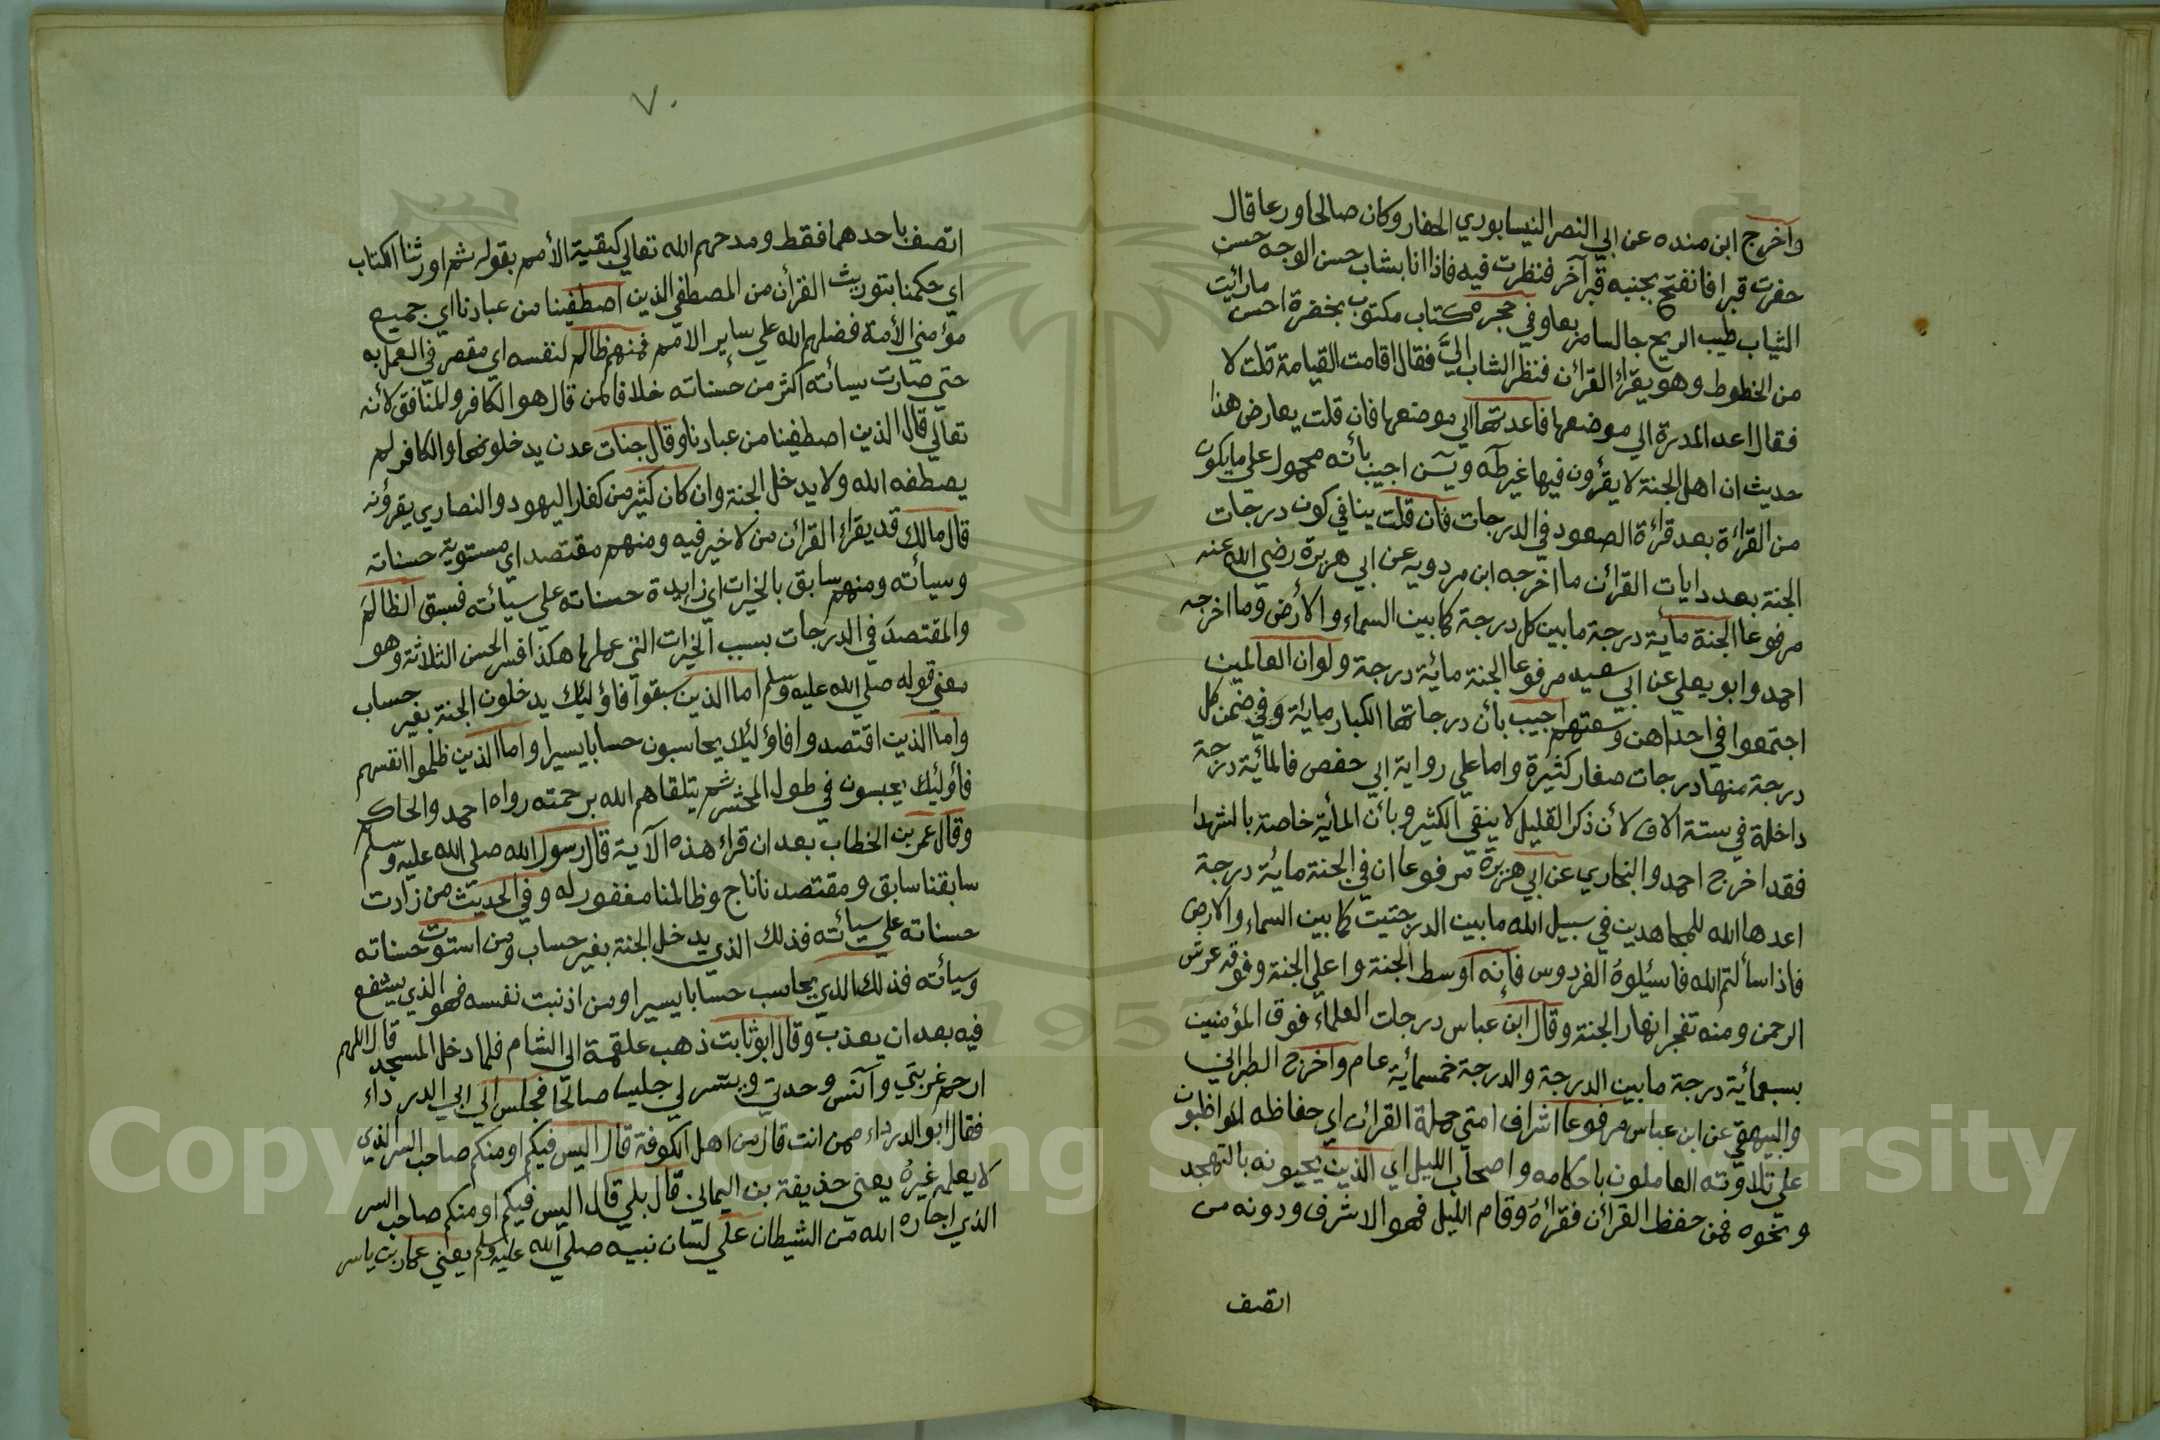 وآخرج ابن منده عن ابي النصر النيسابوري الحفار وكان صالحا ورعا قال
حفرت قبرا فانفتح بجنبه قبر آخر فنظرت فيه فاذا انا بشاب حسن الوجه حسن
الثياب طيب الريح جالسا مربعا وفي حجره كتاب مكتوب بخضرة احسن ما رائيت
من الخطوط وهو يقراء القرائن فنظر الشاب اليّ فقال اقامت القيامة قلت لا
فقال اعد المدرة الي موضعها فاعدتها الي موضعها فان قلت يعارض هذا
حديث ان اهل الجنة لا يقرؤن فيها غير طه ويسن اجيب بأنه محمول علي ما يكون
من القراءة بعد قراءة الصعود في الدرجات فان قلت ينافي كون درجات
الجنة بعدد ايات القرائن ما اخرجه ابن مردويه عن ابي هريرة رضي الله عنه
مرفوعا الجنة مأية درجة ما بين كل درجة كما بين السماء والأرض وما اخرجه
احمد وابو يعلي عن ابي سعيد مرفوعا الجنة مائة درجة ولو ان العالمين
اجتمعوا في احداهن وسعتهم اجيب بأن درجاتها الكبار مائة وفي ضمن كل
درجة منها درجات صغار كثيرة واما علي رواية ابي حفص فالمائية درجة
داخلة في ستة الاف لأن ذكر القليل لا ينفي الكثير وبأن المأية خاصة بالشهدا
فقد اخرج احمد والبخاري عن ابي هريرة مرفوعا ان في الجنة مائة درجة
اعدها الله للمجاهدين في سبيل الله ما بين الدرجتين كما بين السماء والارض
فاذا سألتم الله فاسئلوهُ الفردوس فإنه اوسط الجنة واعلي الجنة وفوقه عرش
الرحمن ومنه تفجر انهار الجنة وقال ابن عباس درجات العلماء فوق المؤمنين
بسبعمائية درجة ما بين الدرجة والدرجة خمسمائية عام واخرج الطبراني
والبيهقي عن ابن عباس مرفوعا اشراف امتي حملة القرائن اي حفاظه المواظبون
علي تلاوته العاملون باحكامه واصحاب الليل اي الذين يحيونه بالتهجد
ونحوه فمن حفظ القرائن فقرائه وقام الليل فهو الاشرف ودونه من
اتصف
٧٠
اتصف باحدهما فقط ومدحهم الله تعالي كبقية الأمم بقوله ثم اورثنا الكتاب
اي حكمنا بتوريث القرأن من المصطفي الذين اصطفينا من عبادنا اي جميع
مؤمني الأمة فضلهم الله علي ساير الامم فمنهم ظالم لنفسه اي مقصر في العمل به
حتي صارت سيأته اكثر من حسناته خلافا لمن قال هو الكافر والمنافق لأنه
تعالي قال الذين اصطفينا من عبادنا وقال جنات عدن يدخلونها والكافر لم
يصطفه الله ولا يدخل الجنة وان كان كثير من كفار اليهود والنصاري يقرؤنه
قال مالك قد يقراء القرائن من لا خير فيه ومنهم مقتصد اي مستوية حسناته
وسيأته ومنهم سابق بالخيرات اي زايدة حسناته علي سيأته فسبق الظالمَ
والمقتصدَ في الدرجات بسبب الخيرات التي عملها هكذا فسر الحسن الثلاثة وهو
معني قوله صلي الله عليه وسلم اما الذين سبقوا فاؤليك يدخلون الجنة بغير حساب
واما الذين اقتصدوا فاؤليك يحاسبون حسابا يسيرا واما الذين ظلموا انفسهم
فأوليك يحبسون في طول المحشر ثم يتلقاهم الله برحمته رواه احمد والحاكم
وقال عمر بن الخطاب بعد ان قراء هذه الآية قال رسول الله صلي الله عليه وسلم
سابقنا سابق ومقتصدنا ناج وظالمنا مغفور له وفي الحديث من زادت
حسناته علي سيأته فذلك الذي يدخل الجنة بغير حساب ومن استوت حسناته
وسيأته فذلك الذي يحاسب حسابا يسيرا ومن اذنبت نفسه فهو الذي يشفع
فيه بعد ان يعذب وقال ابو ثابت ذهب علقمة الي الشام فلما دخل المسجد قال اللهم
ارحم غربتي وآنس وحدتي ويسر لي جليسا صالحا فجلس الي ابي الدرداء
فقال ابو الدرداء ممن انت قال من اهل الكوفة قال اليس فيكم او منكم صاحب السر الذي
لا يعلمه غيره يعني حذيفة بن اليماني قال بلي قال اليس فيكم او منكم صاحب السر
الذي اجاره الله من الشيطان علي لسان نبيه صلي الله عليه وسلم يعني عمار بن ياسر
Copyright © King Saud University
1957